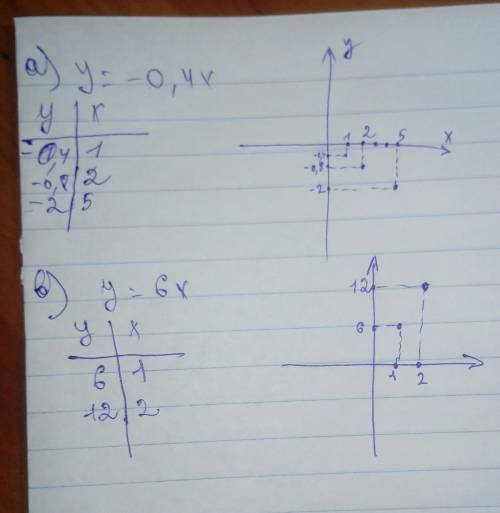 а) y = -0,4x
y x
-0,4 1
-0,8 2
-2 5
y
1 2 5 x
-0,4
-0,8
-2
в) y = 6x
y x
6 1
12 2
12
6
1 2